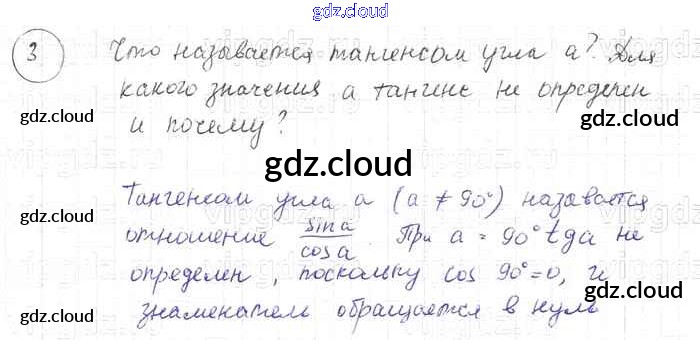 gdz.cloud
3 Что называется тангенсом угла a? Для
какого значения a тангенс не определен
и почему?
gdz.cloud
gdz.cloud
gdz.cloud
gdz.cloud
Тангенсом угла a (a ≠ 90°) называется
отношение sin a / cos a. При a = 90° tg a не
определен, поскольку cos 90° = 0, и
знаменатель обращается в нуль
gdz.cloud
gdz.cloud
gdz.cloud
gdz.cloud